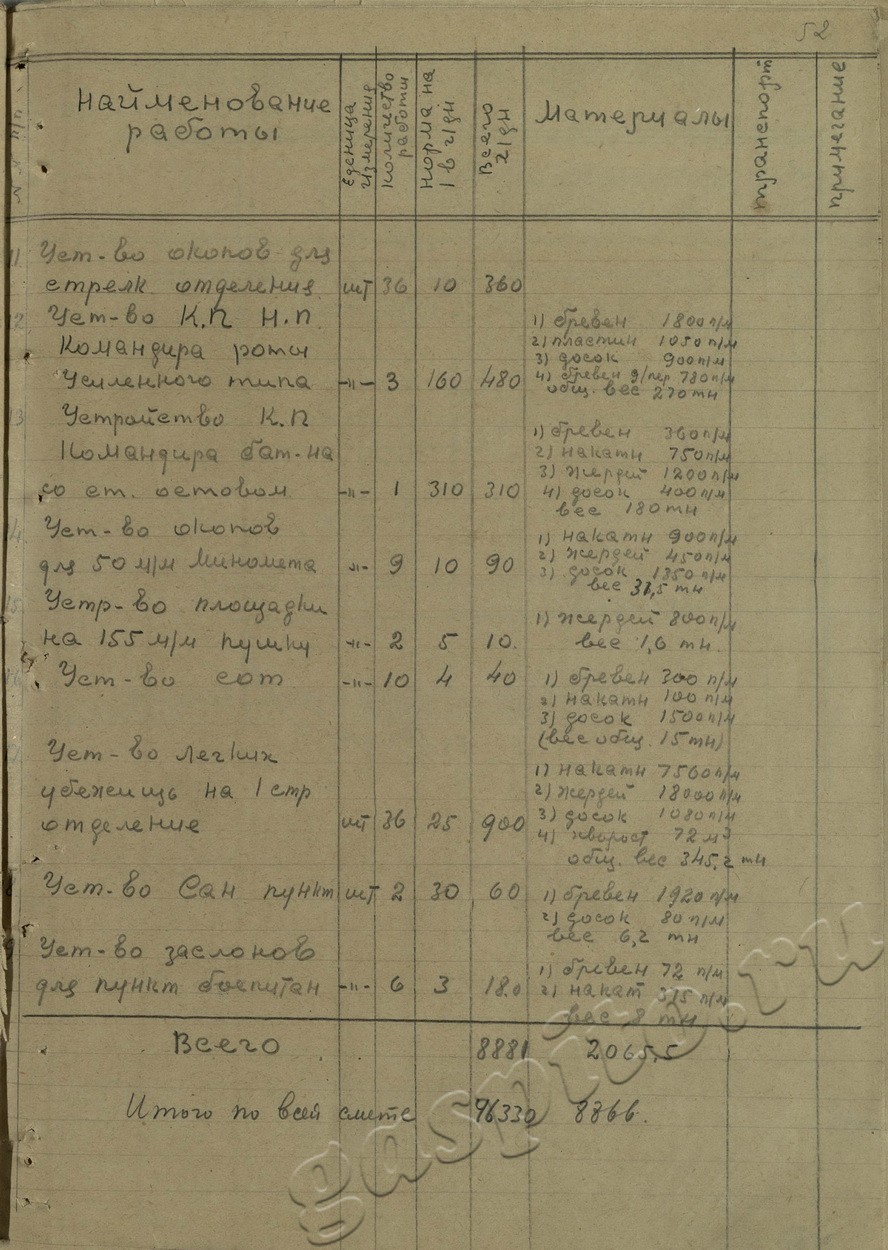 52
№№ п/п
Найменование работы
Еденица измерения
Количество работы
Норма на 1 в ч/дн
Всего ч/дн
Материалы
транспорт
примечание
11 Уст-во окопов для
стрелк. отделения шт 36 10 360
12 Уст-во К.П Н.П. 1) бревен 1800 п/м
Командира роты 2) пластин 1050 п/м
3) досок 900 п/м
Усиленного типа -"- 3 160 480 4) бревен д/пер 780 п/м
общ. вес 270 тн
13 Устройство К.П
1) бревен 360 п/м
Командира бат-на 2) накатн 750 п/м
3) жердей 1200 п/м
со ст. остовом -"- 1 310 310 4) досок 400 п/м
вес 180 тн
14 Уст-во окопов 1) накатн 900 п/м
2) жердей 450 п/м
для 50 м/м Миномета -"- 9 10 90 3) досок 1350 п/м
вес 31,5 тн
15 Устр-во площадки
1) жердей 800 п/м
на 155 м/м пушку -"- 2 5 10. вес 1,6 тн.
Уст-во сот -"- 10 4 40 1) бревен 300 п/м
2) накатн 100 п/м
3) досок 1500 п/м
(вес общ. 15 тн)
Уст-во легких
1) накатн 7560 п/м
убежищь на 1 стр 2) жердей 18000 п/м
3) досок 1080 п/м
отделение шт 36 25 900 4) хворост 72 м³
общ. вес 345,2 тн
Уст-во Сан пункт шт 2 30 60 1) бревен 1920 п/м
2) досок 80 п/м
вес 6,2 тн
Уст-во заслонов
1) бревен 72 п/м
для пункт боепитан -"- 6 3 18.0 2) накат 375 п/м
вес 8 тн
Всего 8881 2065,5
Итого по всей смете 46330 8866.
gaspiro.ru